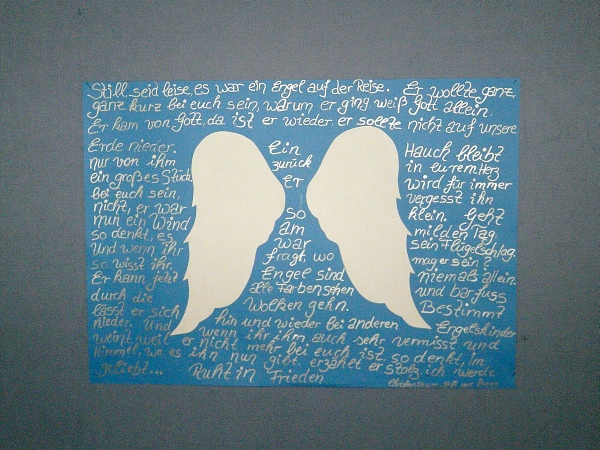 Still, seid leise, es war ein Engel auf der Reise. Er wollte ganz,
ganz kurz bei euch sein, warum er ging weiß Gott allein.
Er kam von Gott, da ist er wieder. er sollte nicht auf unsere
Erde nieder. Ein Hauch bleibt
nur von ihm zurück in eurem Herz
ein großes Stück. Er wird für immer
bei euch sein, vergesst ihn
nicht, er war so klein. Geht
nun ein Wind am milden Tag,
so denkt, es war sein Flügelschlag.
Und wenn ihr fragt, wo mag er sein?
so wisst ihr Engel sind niemals allein.
Er kann jetzt alle Farben sehen und barfuss
durch die Wolken gehn. Bestimmt
lässt er sich hin und wieder bei anderen Engelskinder
nieder. Und wenn ihr ihn auch sehr vermisst und
weint, weil er nicht mehr bei euch ist so denkt, Im
Himmel, wo es ihn nun gibt, erzählt er stolz, ich werde
geliebt...
Ruht in Frieden